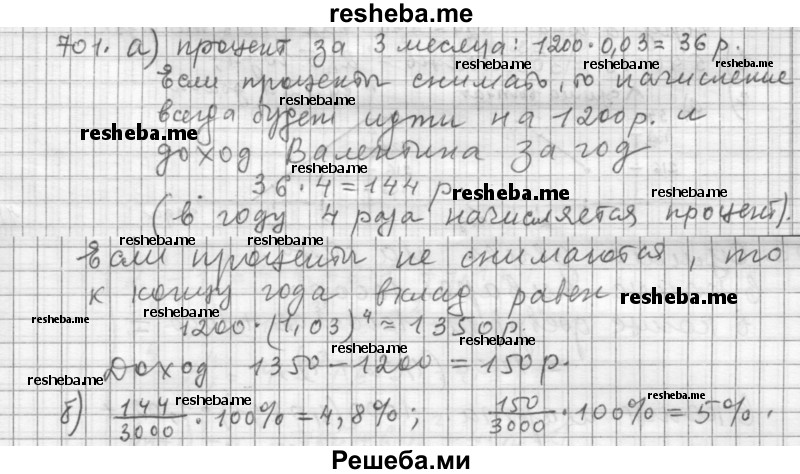 resheba.me
701. а) процент за 3 месяца: 1200·0,03=36 р.
resheba.me resheba.me
Если проценты снимать, то начисление
resheba.me
всегда будет идти на 1200р. и
resheba.me
доход Валентина за год
resheba.me
36·4=144 р. resheba.me
(в году 4 раза начисляется процент).
resheba.me resheba.me
Если проценты не снимаются, то
к концу года вклад равен resheba.me
resheba.me 1200·(1,03)⁴≈1350р.
resheba.me resheba.me
Доход 1350-1200=150р.
resheba.me resheba.me resheba.me
б) 144/3000·100%=4,8%; 150/3000·100%=5%.
Решеба.ми